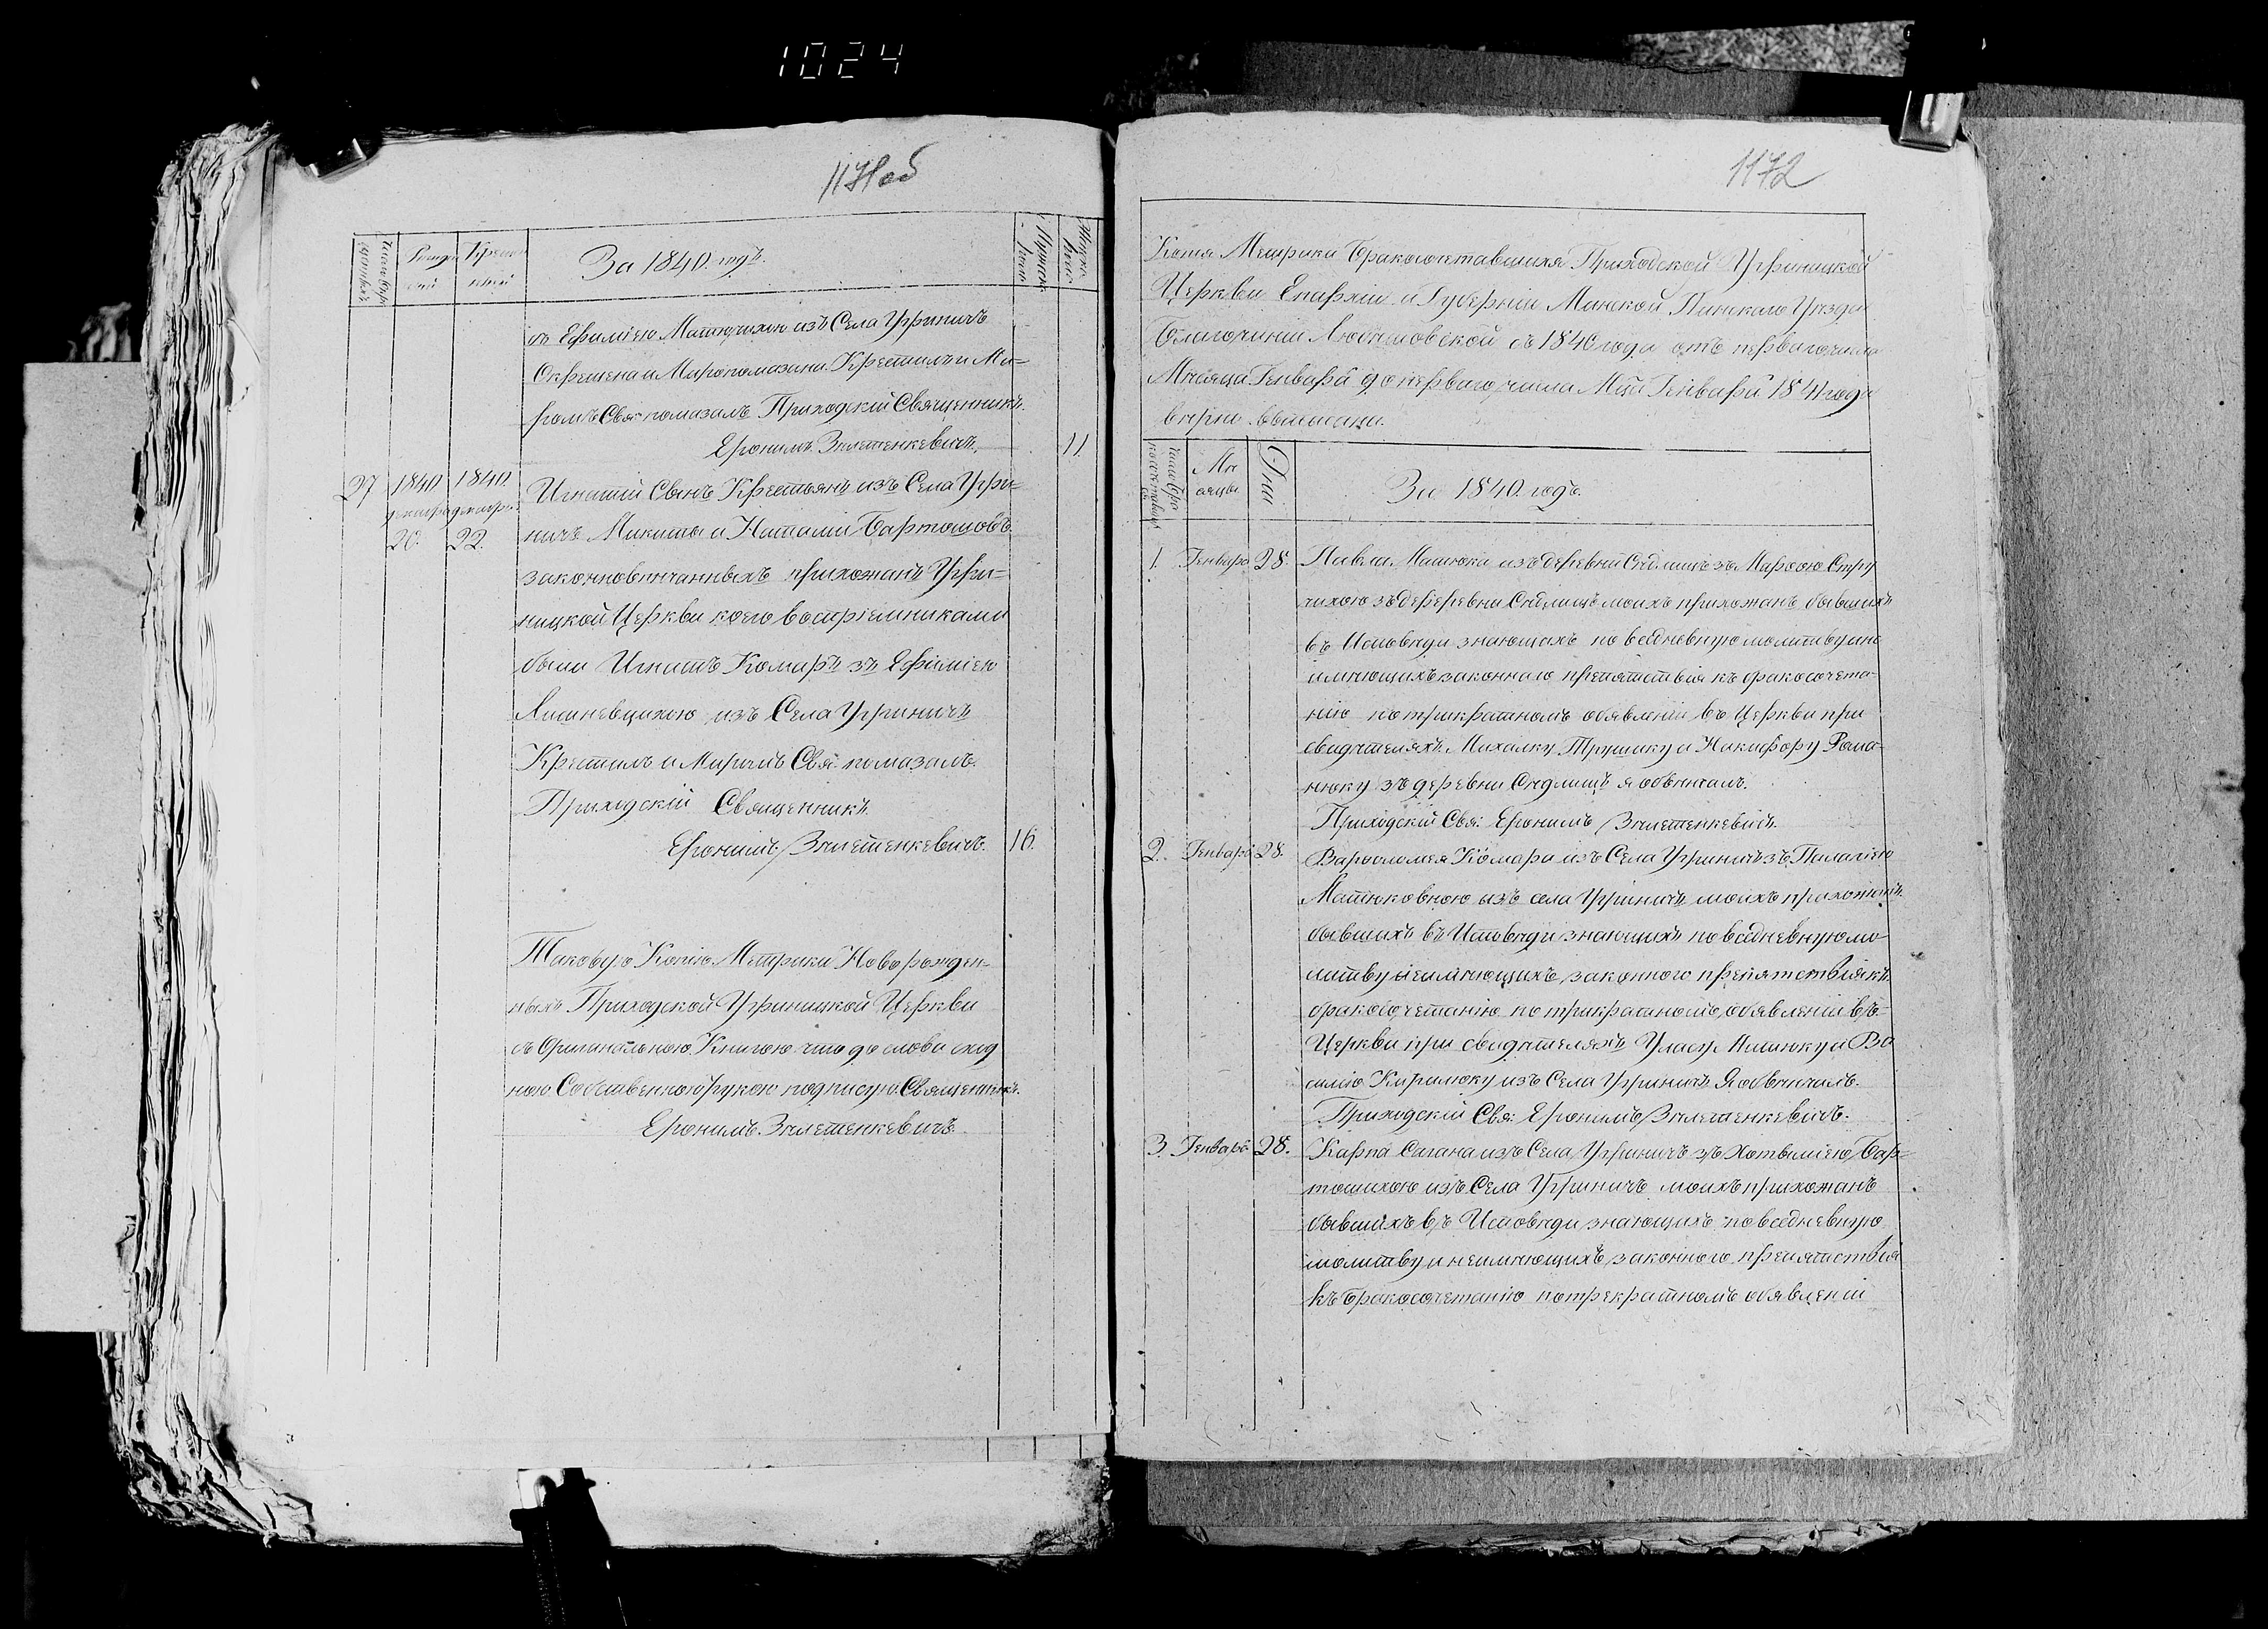 1024
1171 об
Число кре
щенныхъ
Рожде
ній
Креще
ній
За 1840. годъ.
Мужеска
Полу
Женска
Полу
съ Ефиміею Матюхою изъ Села Угриничъ
Окрещена и Миропомазана. Крестилъ и Ми=
ромъ Свя: помазалъ Приходскій Священникъ.
Еронимъ
11.
27 1840 1840. Игнатій Сынъ Крестьянъ изъ Села Угри=
декабра декабра
20. 22. ничъ Микиты и Наталіи Бартошовъ
законновенчанныхъ прихожанъ Угри=
ницкой Церкви коего воспріемниками
были Игнатъ Комаръ зъ Ефиміею
изъ Села Угриничъ
Крестилъ и Миромъ Свя: помазалъ.
Приходскій Священникъ.
Еронимъ 16.
Таковую Копію Метрики Новорожден=
ныхъ Приходской Угриницкой Церкви
съ Оригинальною Книгою что до слова сход
ною Собственною рукою подписую. Священникъ.
Еронимъ
1172
Копія Метрики Бракосочетавшихся Приходской Угриницкой
Церкви Епархіи и Губерніи Минской Пинскаго Уезда
Благочинія Любешовской съ 1840 года отъ перваго числа
Месяца Генвара до перваго числа Мца Генвара 1841 года
верно выписана.
Число бра
косочетавших
ся
Ме
сяцы
Дни
За 1840. годъ.
1. Генвара 28. Павла Машюка изъ деревни Седлищъ зъ Марѳою Стру
чихою зъ деревни Седлищъ моихъ прихожанъ бывшихъ
въ Исповеди знающихъ повседневную молитву и не
имеющихъ законнаго препятствія къ бракосочета-
нію по трикратномъ обявленіи въ Церкви при
свидетеляхъ Михалку Трушику и Никифору Рома-
нюку зъ деревни Седлищъ я обвенчалъ.
Приходскій Свя: Еронимъ
2. Генвара 28. Варѳоломея Комара изъ Села Угриничъ зъ Палагіею
Матюковною изъ села Угриничъ моихъ прихожанъ.
бывшихъ въ Исповеди знающихъ повседневную мо-
литву и неимеющихъ законного препятствія къ
бракосочетанію по трикратномъ обявленіи въ=
Церкви при свидетеляхъ Уласу Машюку и Ва
силію Кирилюку изъ Села Угриничъ Я обвенчалъ.
Приходскій Свя: Еронимъ
3. Генвара 28. Карпа Сагана изъ Села Угриничъ зъ Хотымією Бар=
тошихою изъ Села Угриничъ моихъ прихожанъ
бывшихъ въ Исповеди знающихъ повседневную
молитву и неимеющихъ законного препятствія
къ бракосочетанію по трекратномъ обявленіи